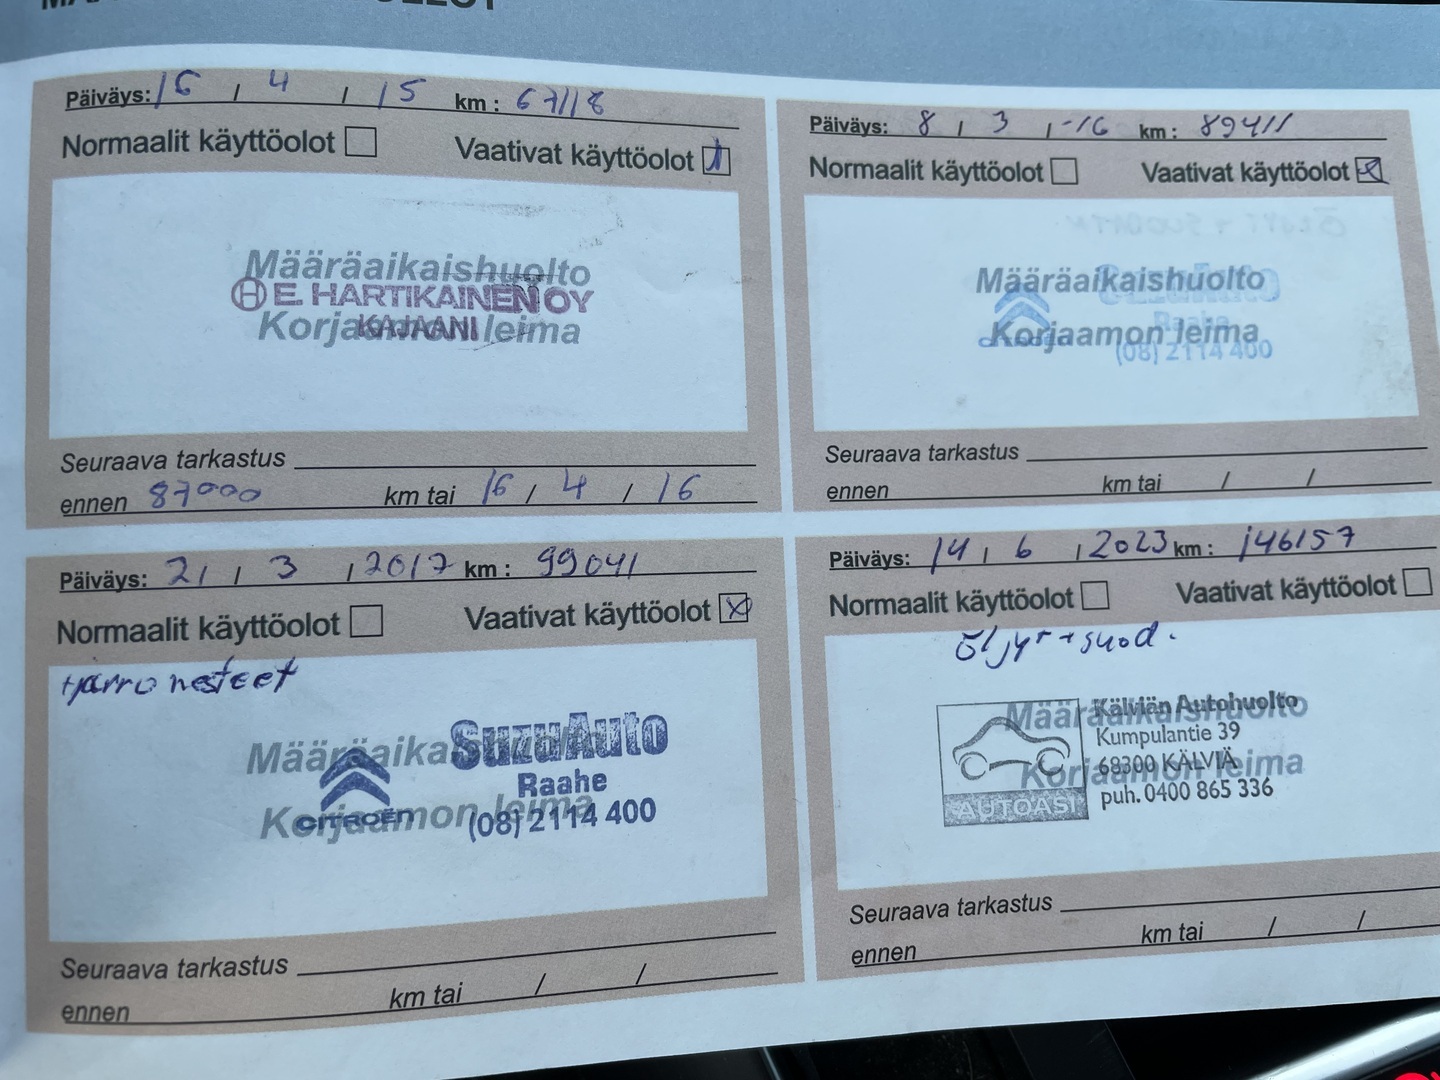 Päiväys: 16 / 4 / 15 km : 67118
Normaalit käyttöolot Vaativat käyttöolot
Määräaikaishuolto
E. HARTIKAINEN OY
Korjaamon leima
KAJAANI
Seuraava tarkastus
ennen 87000 km tai 16 / 4 / 16
Päiväys: 8 / 3 / -16 km : 89411
Normaalit käyttöolot Vaativat käyttöolot X
Määräaikaishuolto
SuzuAuto
Raahe
Korjaamon leima
CITROËN (08) 2114 400
Seuraava tarkastus
ennen km tai / /
Päiväys: 21 / 3 / 2017 km : 99041
Normaalit käyttöolot Vaativat käyttöolot X
Hjarru nesteet
Määräaikaishuolto
SuzuAuto
Raahe
Korjaamon leima
CITROËN (08) 2114 400
Seuraava tarkastus
ennen km tai / /
Päiväys: 14 / 6 / 2023 km : 146157
Normaalit käyttöolot Vaativat käyttöolot
Öljyt + suod.
Määräaikaishuolto
Korjaamon leima
AUTOASI
Kälviän Autohuolto
Kumpulantie 39
68300 KÄLVIÄ
puh. 0400 865 336
Seuraava tarkastus
ennen km tai / /